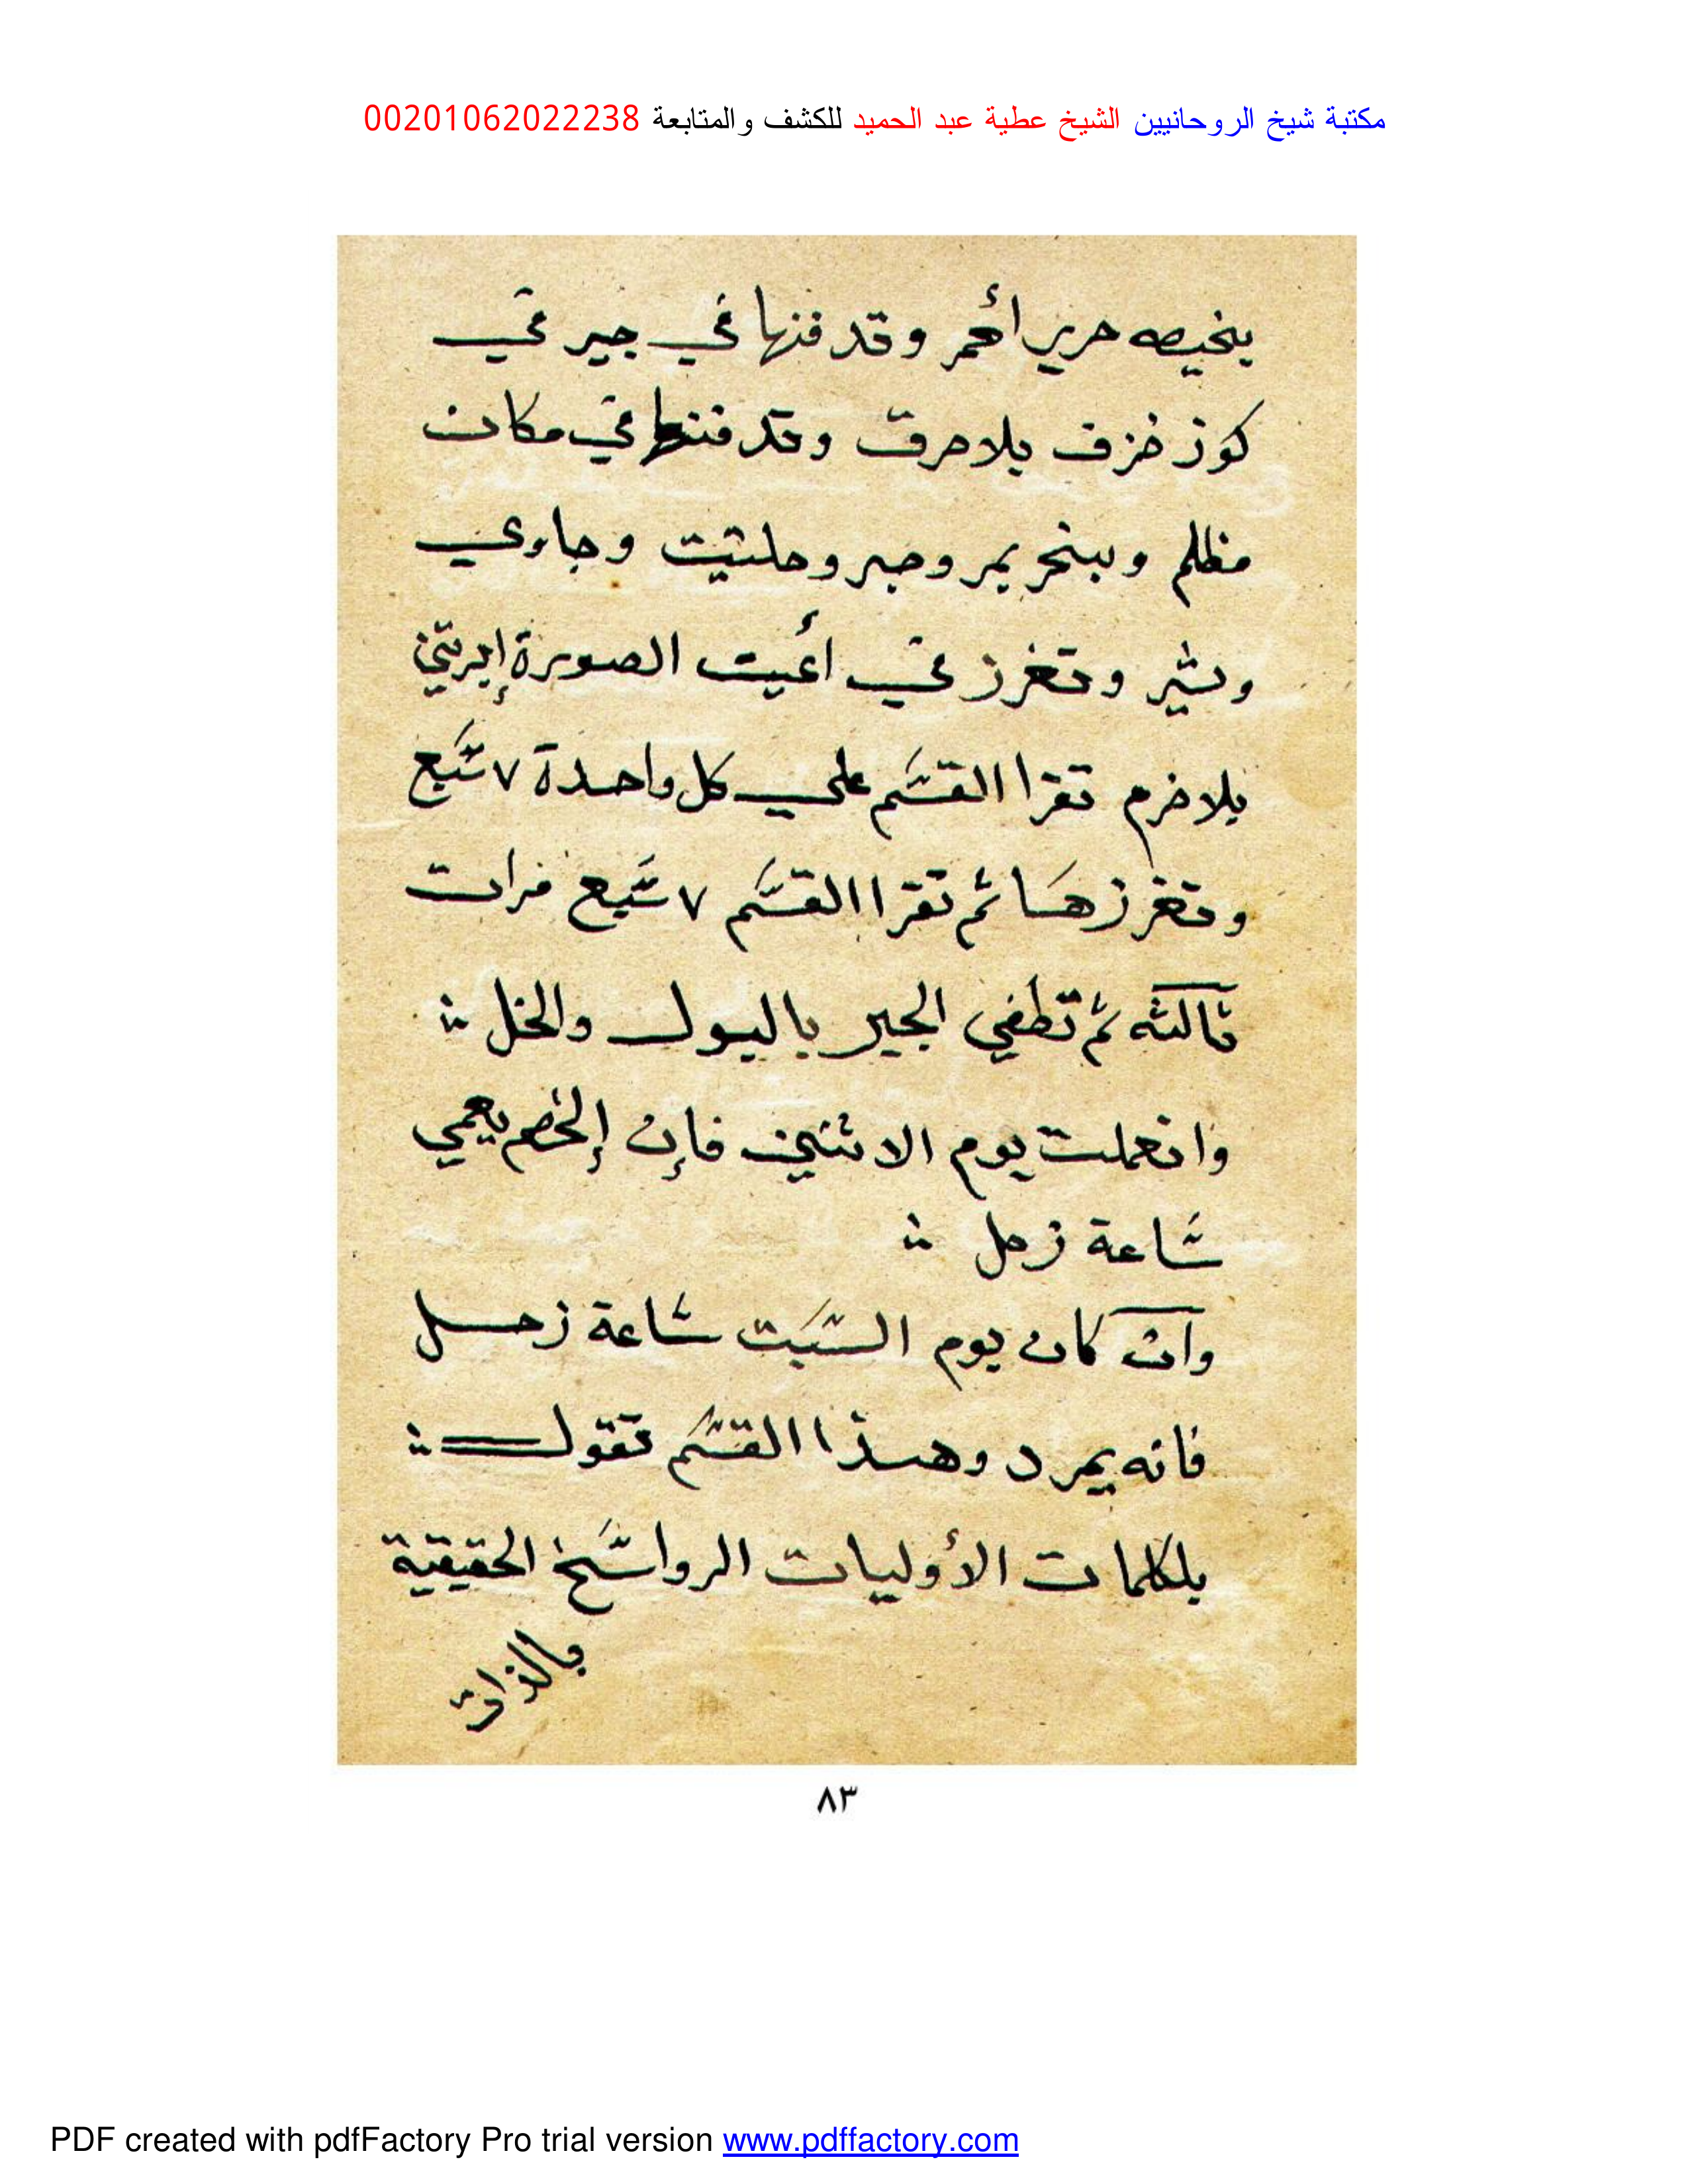 مكتبة شيخ الروحانيين الشيخ عطية عبد الحميد للكشف والمتابعة 00201062022238
حرير أحمر وتدفنها في جير في
كوز خزف بلا حرق وتدفنها في مكان
مظلم وببخر بمر وصبر وحلتيت وجاوي
وتغرز في أعين الصورة إبرتين
بلا خرم تقرا القسم علي كل واحدة ٧ سبع
وتغرزها ثم تقرا القسم ٧ سبع مرات
ثالثه ثم تطفي الجير بالبول والخل
وانعملت يوم الاثنين فإن الخصم يعمي
ساعة زحل
وان كان يوم السبت ساعة زحل
فانه يمرد وهذا القسم تقول
بلكلمات الأوليات الرواسخ الحقيقية
بالذات
٨٣
PDF created with pdfFactory Pro trial version www.pdffactory.com